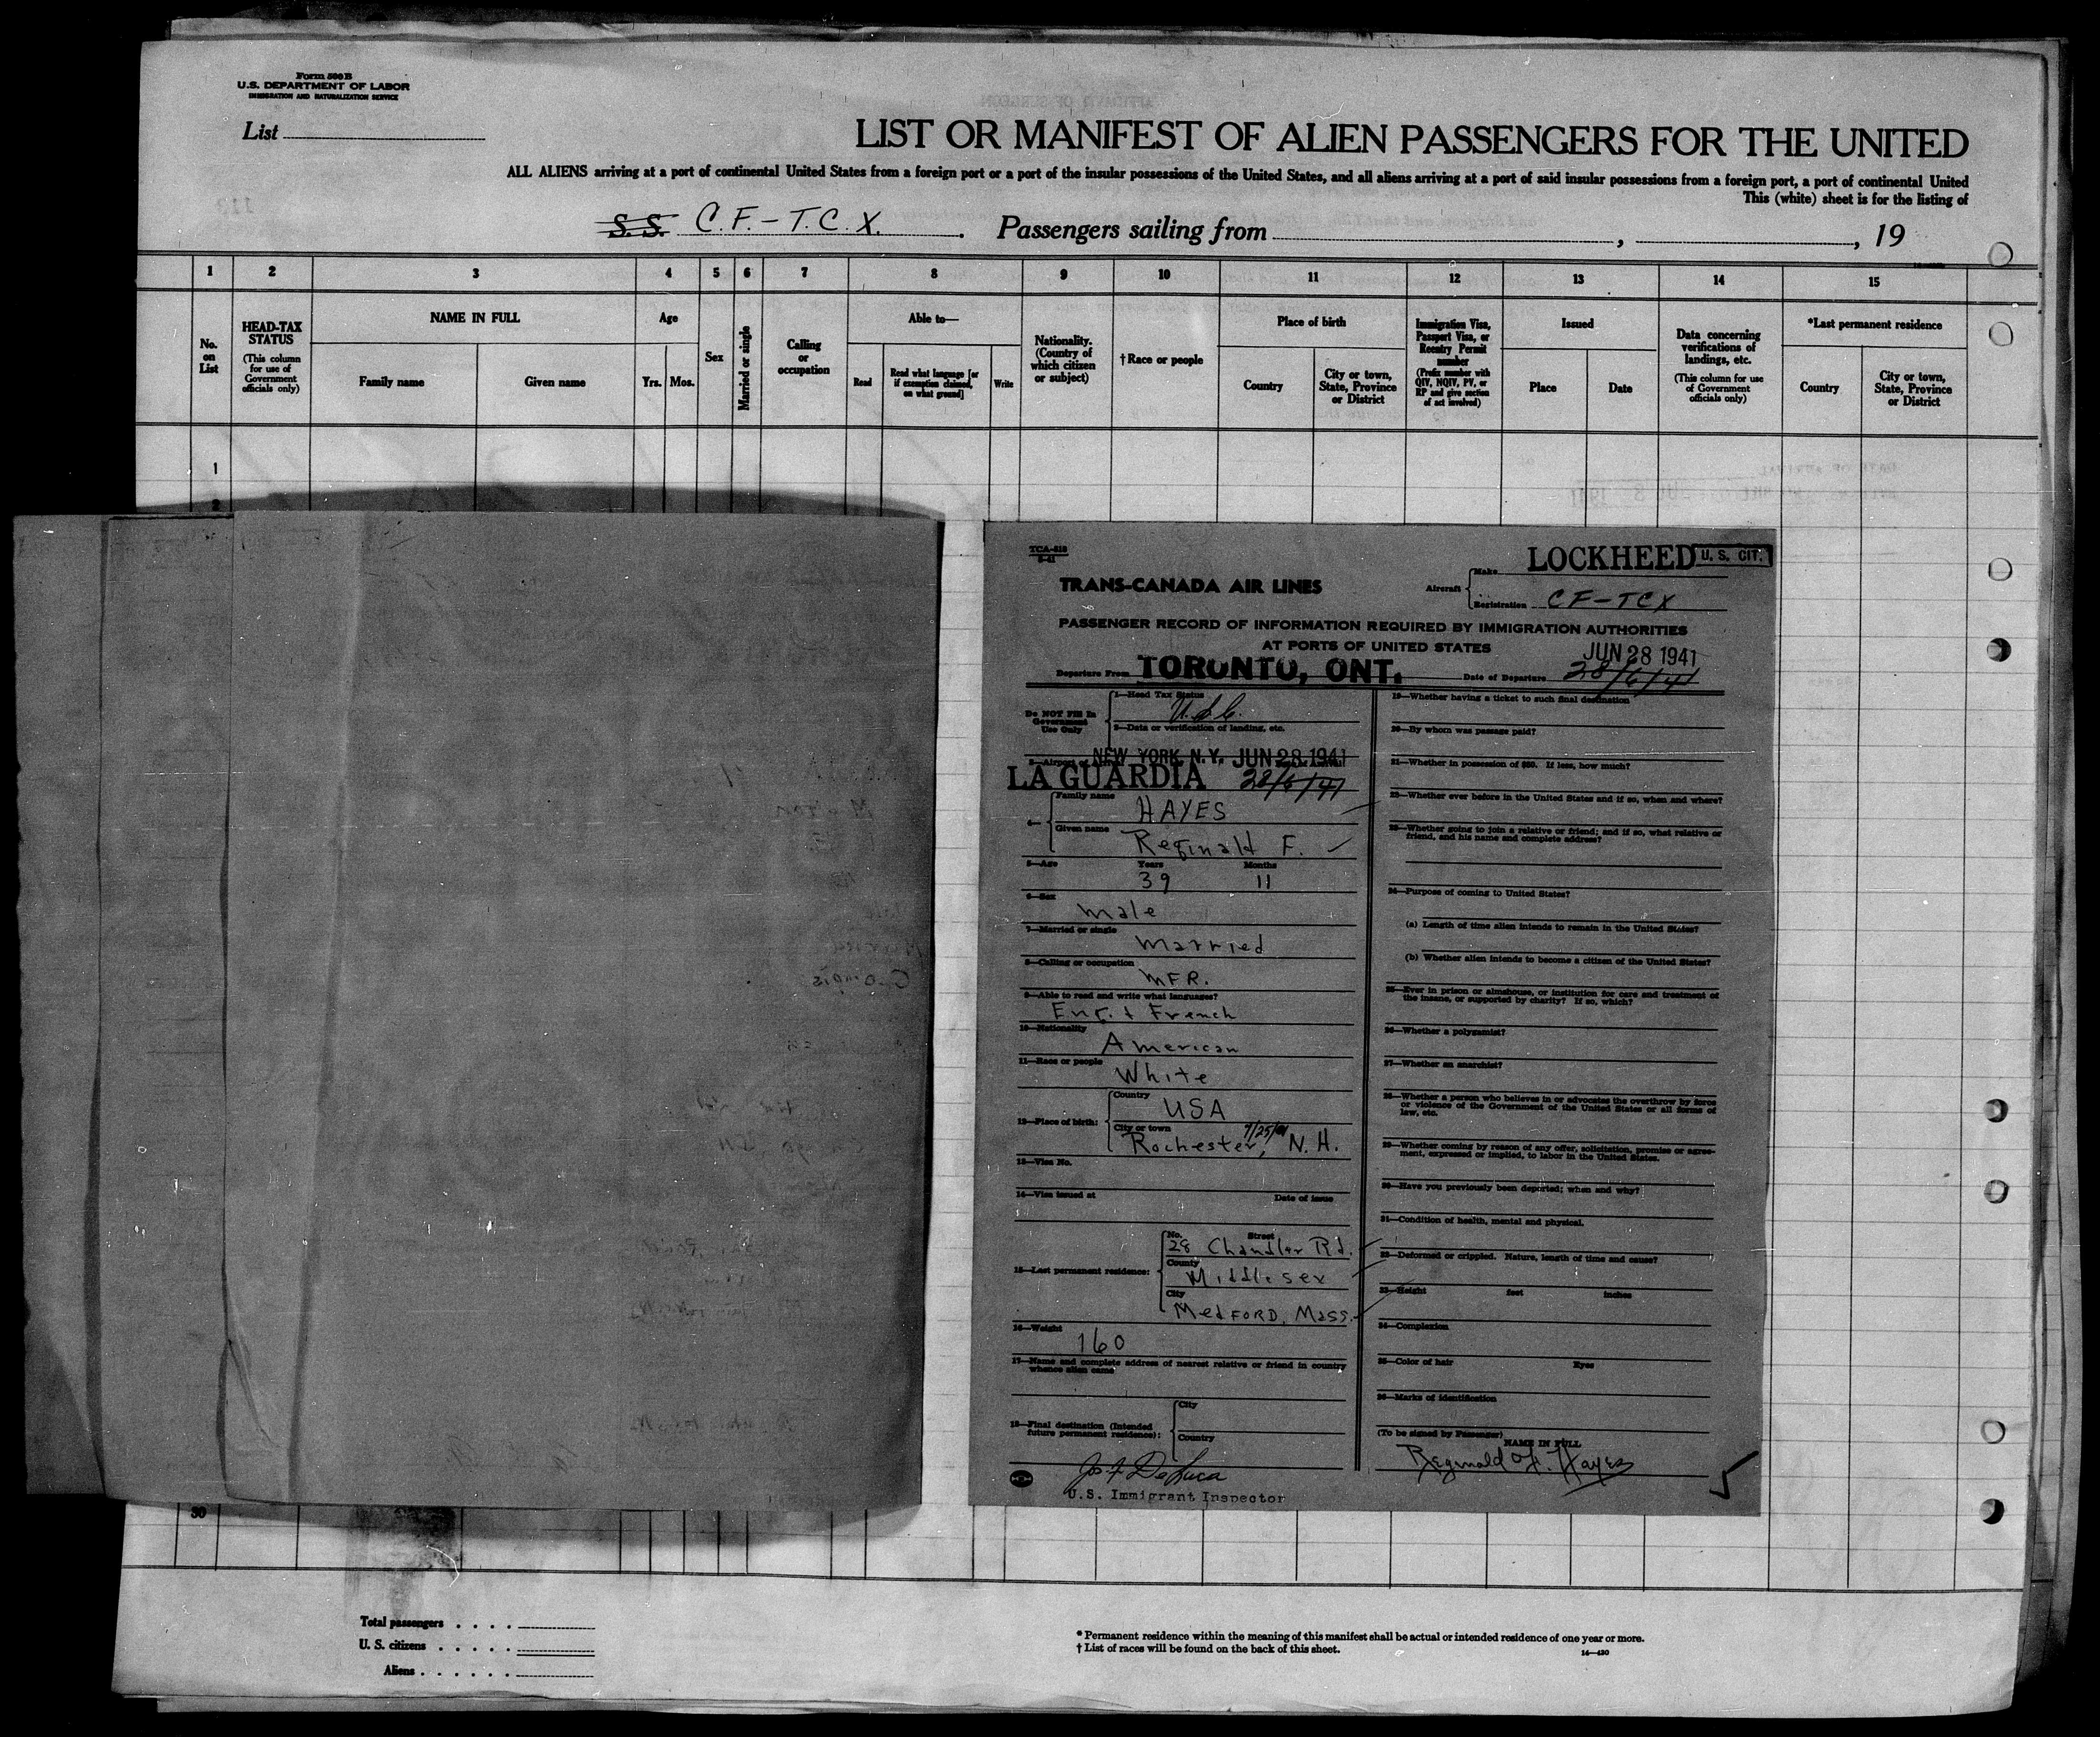 Form 500 B
U.S. DEPARTMENT OF LABOR
IMMIGRATION AND NATURALIZATION SERVICE
List
LIST OR MANIFEST OF ALIEN PASSENGERS FOR THE UNITED
ALL ALIENS arriving at a port of continental United States from a foreign port or a port of the insular possessions of the United States, and all aliens arriving at a port of said insular possessions from a foreign port, a port of continental United
This (white) sheet is for the listing of
S.S. C.F.-T.C.X. Passengers sailing from , , 19
1 2 3 4 5 6 7 8 9 10 11 12 13 14 15
No. on List
HEAD-TAX STATUS
(This column for use of Government officials only)
NAME IN FULL
Family name
Given name
Age
Yrs. Mos.
Sex
Married or single
Calling or occupation
Able to—
Read
Read what language [or if exemption claimed, on what ground]
Write
Nationality. (Country of which citizen or subject)
†Race or people
Place of birth
Country
City or town, State, Province or District
Immigration Visa, Passport Visa, or Reentry Permit number
(Prefix number with QIV, NQIV, PV, or RP and give section of act involved)
Issued
Place
Date
Data concerning verifications of landings, etc.
(This column for use of Government officials only)
*Last permanent residence
Country
City or town, State, Province or District
1
2
TCA-518
5-41
LOCKHEED
U. S. CIT.
TRANS-CANADA AIR LINES
Aircraft
Make
Registration CF-TCX
PASSENGER RECORD OF INFORMATION REQUIRED BY IMMIGRATION AUTHORITIES
AT PORTS OF UNITED STATES
JUN 28 1941
Departure From TORONTO, ONT.
Date of Departure 28/6/41
Do NOT Fill In Government Use Only
1—Head Tax Status
U.S.C.
2—Data or verification of landing, etc.
NEW YORK, N.Y. JUN 28 1941
LA GUARDIA 28/6/41
4—
Family name HAYES
Given name Reginald F.
5—Age Years Months
39 11
6—Sex
Male
7—Married or single
Married
8—Calling or occupation
MFR.
9—Able to read and write what languages?
Eng. & French
10—Nationality
American
11—Race or people
White
12—Place of birth:
Country
USA
City or town 7/25/01
Rochester, N.H.
13—Visa No.
14—Visa issued at Date of issue
15—Last permanent residence:
No. Street
28 Chandler Rd.
County
Middlesex
City
Medford, Mass.
16—Weight
160
17—Name and complete address of nearest relative or friend in country whence alien came
18—Final destination (Intended future permanent residence):
City
Country
Jos F DeLuca
U.S. Immigrant Inspector
19—Whether having a ticket to such final destination
20—By whom was passage paid?
21—Whether in possession of $50. If less, how much?
22—Whether ever before in the United States and if so, when and where?
23—Whether going to join a relative or friend; and if so, what relative or friend, and his name and complete address?
24—Purpose of coming to United States?
(a) Length of time alien intends to remain in the United States?
(b) Whether alien intends to become a citizen of the United States?
25—Ever in prison or almshouse, or institution for care and treatment of the insane, or supported by charity? If so, which?
26—Whether a polygamist?
27—Whether an anarchist?
28—Whether a person who believes in or advocates the overthrow by force or violence of the Government of the United States or all forms of law, etc.
29—Whether coming by reason of any offer, solicitation, promise or agreement, expressed or implied, to labor in the United States.
30—Have you previously been deported; when and why?
31—Condition of health, mental and physical.
32—Deformed or crippled. Nature, length of time and cause?
33—Height feet inches
34—Complexion
35—Color of hair Eyes
36—Marks of identification
(To be signed by Passenger)
NAME IN FULL
Reginald F. Hayes
30
Total passengers
U. S. citizens
Aliens
* Permanent residence within the meaning of this manifest shall be actual or intended residence of one year or more.
† List of races will be found on the back of this sheet.
14—430